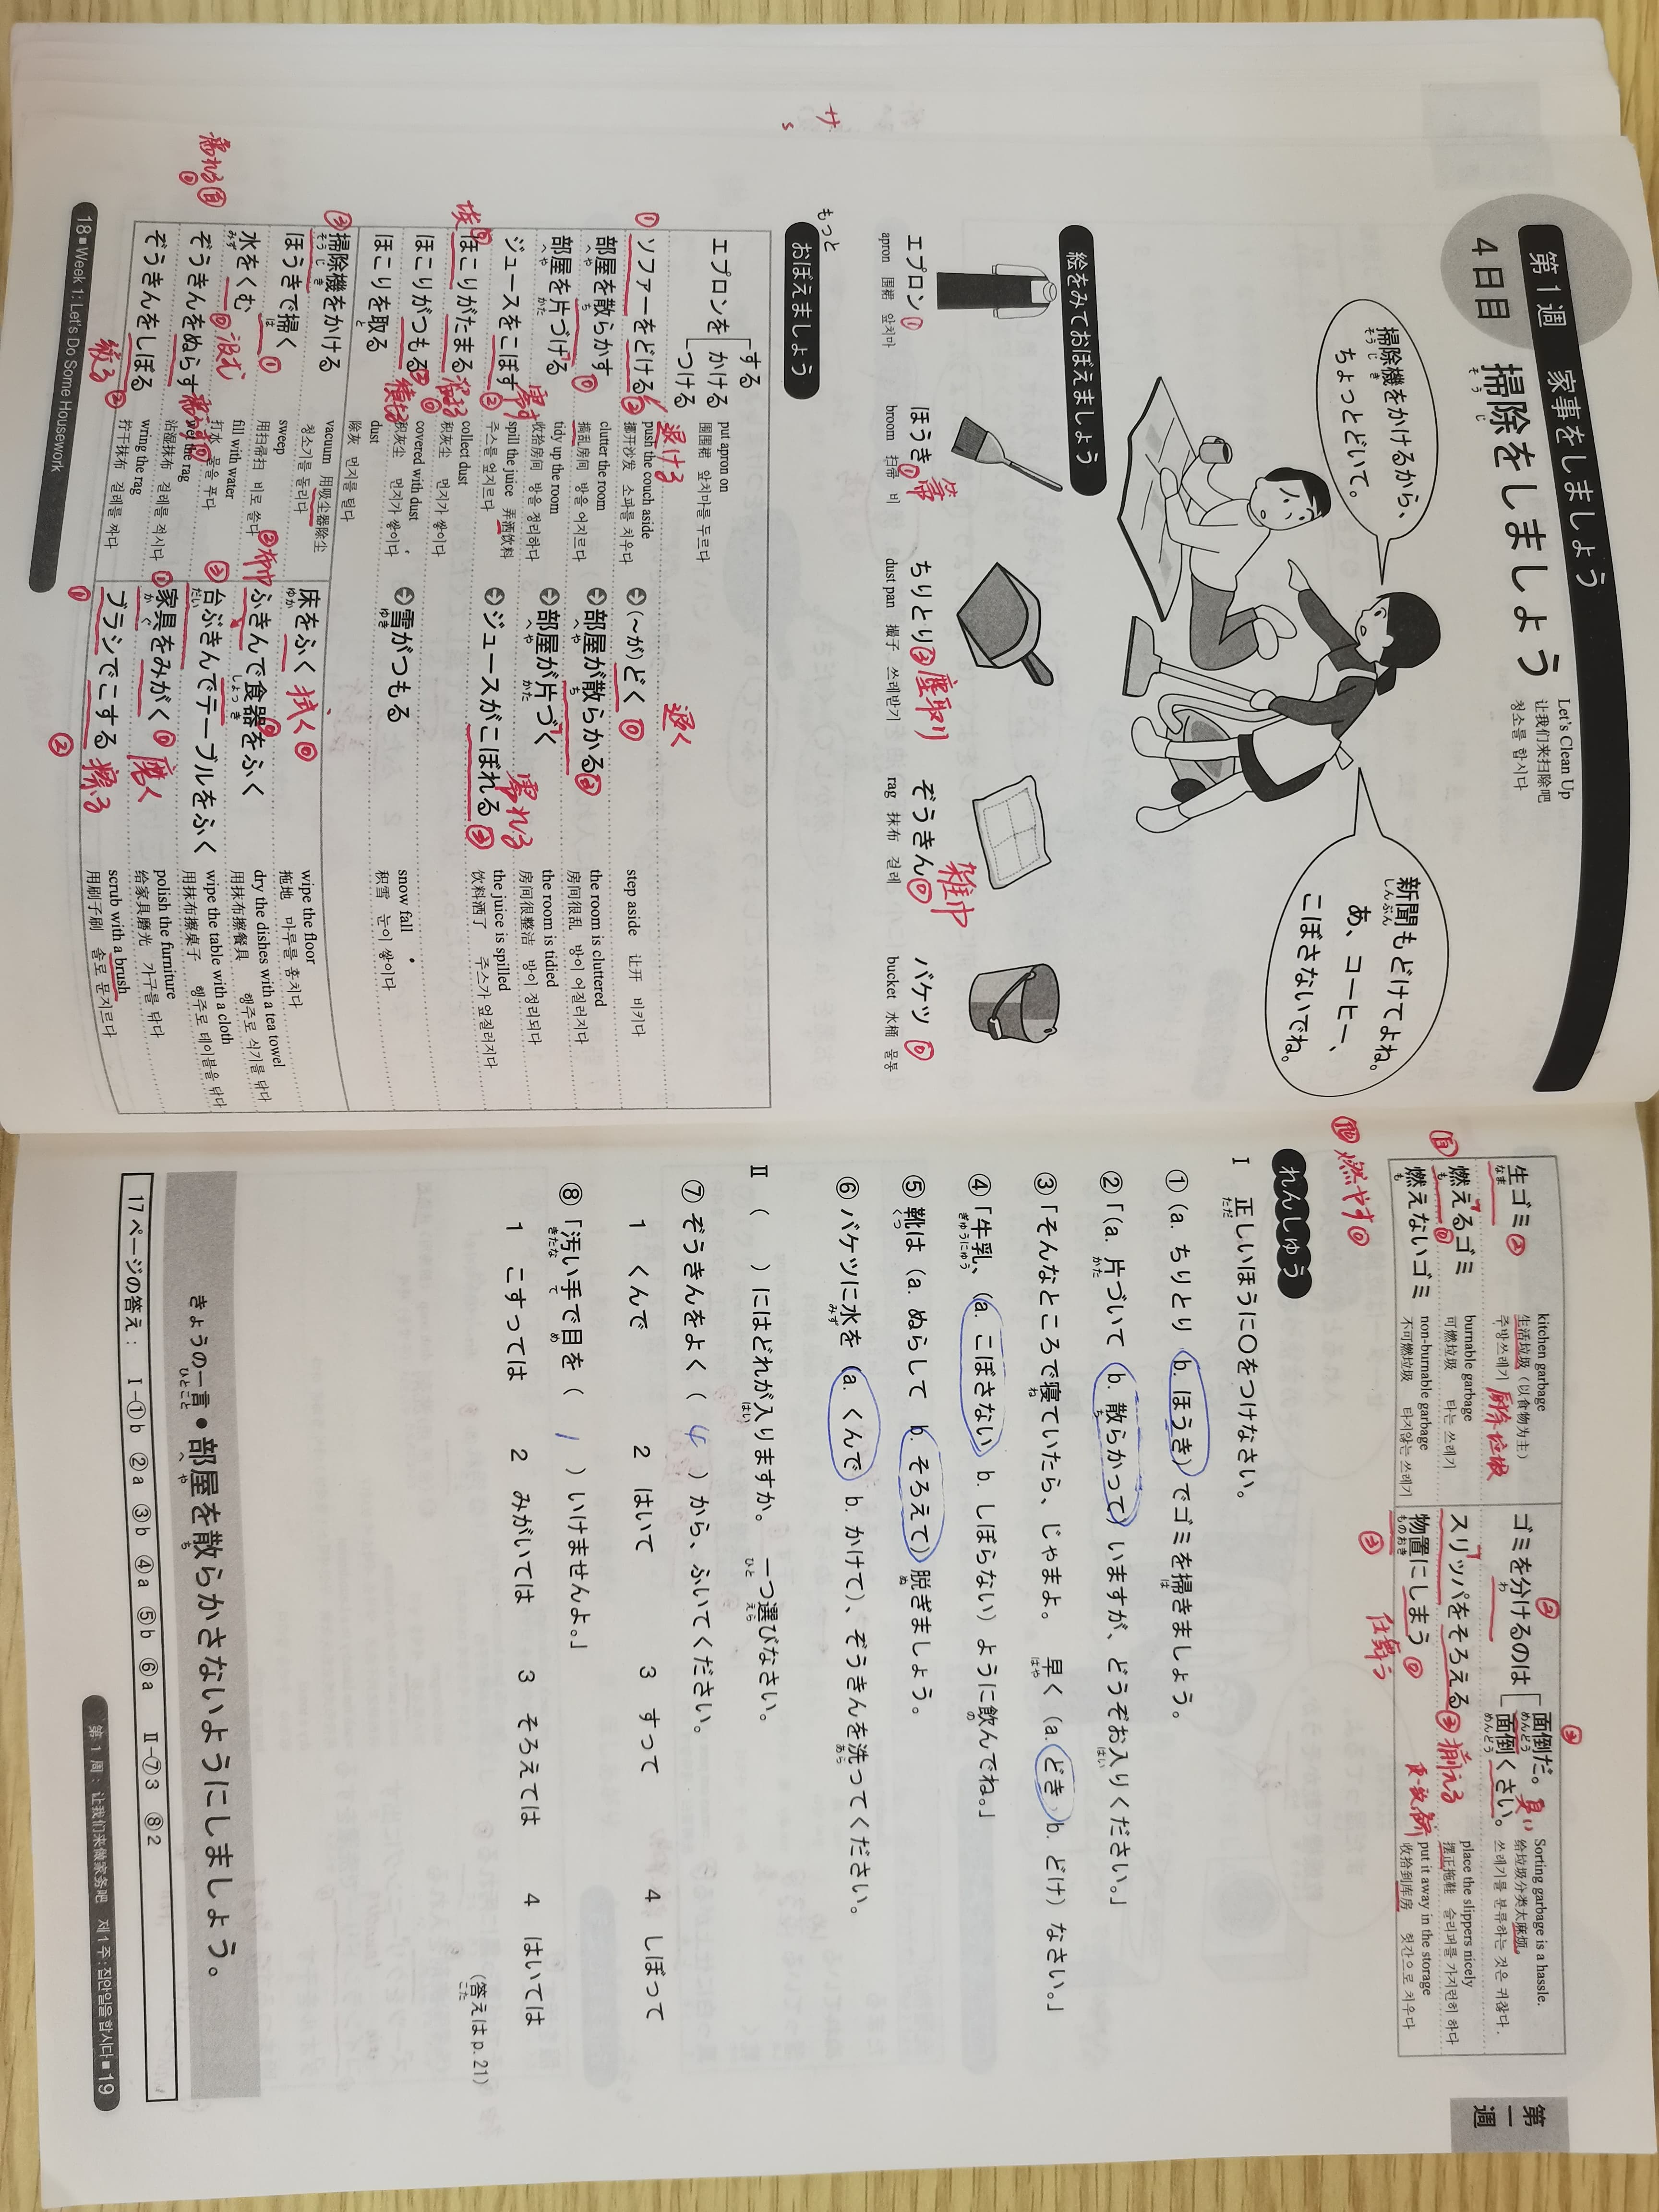 第1週 家事をしましょう
4日目 掃除をしましょう
そうじ
Let's Clean Up
让我们来扫除吧
청소를 합시다
掃除機をかけるから、
そうじき
ちょっとどいて。
新聞もどけてよね。
しんぶん
あ、コーヒー、
こぼさないでね。
絵をみておぼえましょう
エプロン ①
apron 围裙 앞치마
ほうき ① 箒
broom 扫帚 비
ちりとり ③ 塵取り
dust pan 撮子 쓰레받기
ぞうきん ⓪ 雑巾
rag 抹布 걸레
バケツ ⓪
bucket 水桶 물통
もっと
おぼえましょう
エプロンを
する
かける
つける
put apron on
围围裙 앞치마를 두르다
① ソファーをどける ② 退ける
push the couch aside
挪开沙发 소파를 치우다
(～が)どく ⓪ 退く
step aside 让开 비키다
部屋を散らかす ⓪
へや ち
clutter the room
搞乱房间 방을 어지르다
部屋が散らかる ⓪
へや ち
the room is cluttered
房间很乱 방이 어질러지다
部屋を片づける
へや かた
tidy up the room
收拾房间 방을 정리하다
部屋が片づく
へや かた
the room is tidied
房间很整洁 방이 정리되다
ジュースをこぼす ② 零す
spill the juice 弄洒饮料
주스를 엎지르다
ジュースがこぼれる ③ 零れる
the juice is spilled
饮料洒了 주스가 엎질러지다
埃 ほこりがたまる ⓪ 溜る
collect dust
积灰尘 먼지가 쌓이다
ほこりがつもる 積る
covered with dust
积灰尘 먼지가 쌓이다
雪がつもる
ゆき
snow fall
积雪 눈이 쌓이다
ほこりを取る
と
dust
除灰 먼지를 털다
③ 掃除機をかける
そうじき
vacuum 用吸尘器除尘
청소기를 돌리다
ほうきで掃く ①
は
sweep
用扫帚扫 비로 쓸다
水をくむ ⓪ 汲む
みず
fill with water
打水 물을 푸다
濡れる ⓪
ぞうきんをぬらす 濡らす ⓪
wet the rag
沾湿抹布 걸레를 적시다
ぞうきんをしぼる ② 絞る
wring the rag
拧干抹布 걸레를 짜다
床をふく 拭く ⓪
ゆか
wipe the floor
拖地 마루를 훔치다
② 布巾 ふきんで食器をふく
しょっき
dry the dishes with a tea towel
用抹布擦餐具 행주로 식기를 닦다
③ 台ぶきんでテーブルをふく
だい
wipe the table with a cloth
用抹布擦桌子 행주로 테이블을 닦다
① 家具をみがく ⓪ 磨く
かぐ
polish the furniture
给家具磨光 가구를 닦다
① ブラシでこする ② 擦る
scrub with a brush
用刷子刷 솔로 문지르다
18■Week 1: Let's Do Some Housework
第一週
生ゴミ ②
なま
kitchen garbage
生活垃圾（以食物为主）
주방쓰레기 厨余垃圾
燃えるゴミ
も
burnable garbage
可燃垃圾 타는 쓰레기
燃えないゴミ
も
non-burnable garbage
不可燃垃圾 타지않는 쓰레기
燃やす ⓪
ゴミを分けるのは
わ
面倒だ。
めんどう
面倒くさい。 臭い
めんどう
Sorting garbage is a hassle.
给垃圾分类太麻烦
쓰레기를 분류하는 것은 귀찮다.
スリッパをそろえる ③ 揃える
place the slippers nicely
摆正拖鞋 슬리퍼를 가지런히 하다
物置にしまう ⓪ 仕舞う
ものおき
put it away in the storage
收拾到库房 헛간으로 치우다
れんしゅう
I 正しいほうに〇をつけなさい。
ただ
①（a. ちりとり b. ほうき）でゴミを掃きましょう。
は
②「（a. 片づいて b. 散らかって）いますが、どうぞお入りください。」
かた ち はい
③「そんなところで寝ていたら、じゃまよ。 早く（a. どき b. どけ）なさい。」
ね はや
④「牛乳、（a. こぼさない b. しぼらない）ように飲んでね。」
ぎゅうにゅう の
⑤ 靴は（a. ぬらして b. そろえて）脱ぎましょう。
くつ ぬ
⑥ バケツに水を（a. くんで b. かけて）、ぞうきんを洗ってください。
みず あら
II （ ）にはどれが入りますか。 一つ選びなさい。
はい ひと えら
⑦ ぞうきんをよく（ 4 ）から、ふいてください。
1 くんで 2 はいて 3 すって 4 しぼって
⑧「汚い手で目を（ 1 ）いけませんよ。」
きたな て め
1 こすっては 2 みがいては 3 そろえては 4 はいては
（答えは p. 21）
こた
きょうの一言●部屋を散らかさないようにしましょう。
ひとこと へや ち
17ページの答え： I－①b ②a ③b ④a ⑤b ⑥a II－⑦3 ⑧2
第1周：让我们来做家务吧 제1주:집안일을합시다■19